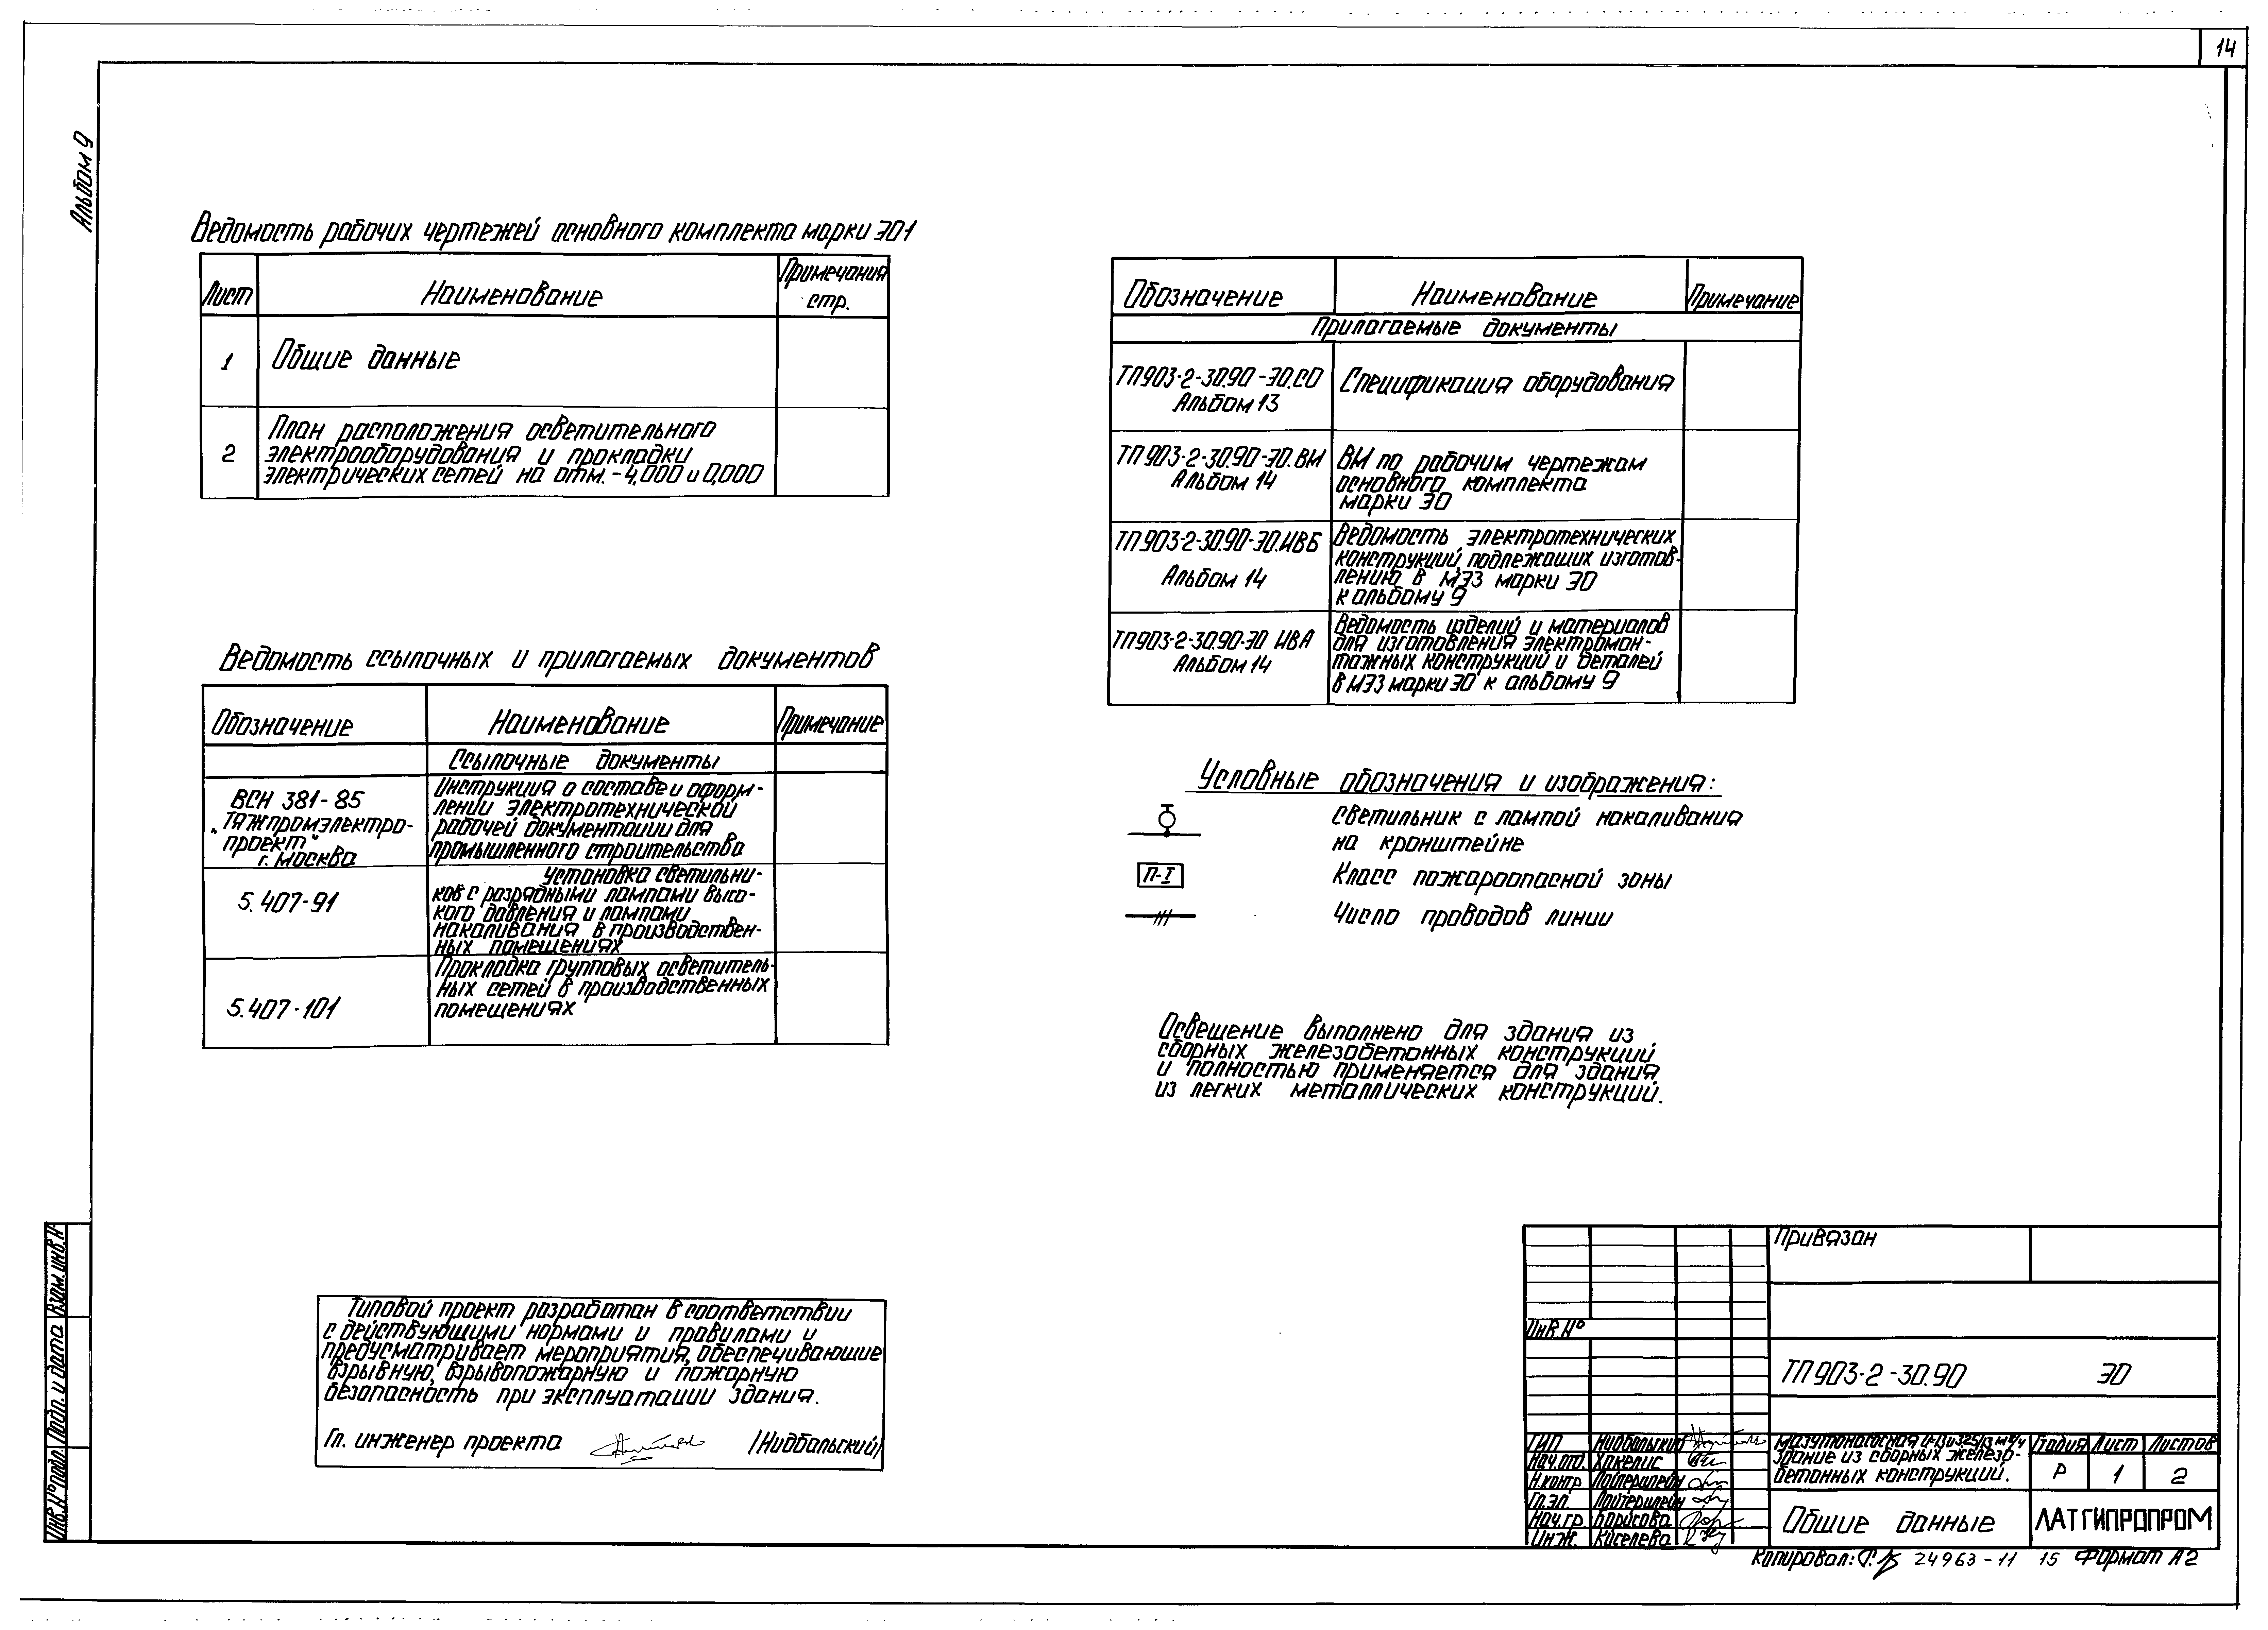 14
Альбом 9
Ведомость рабочих чертежей основного комплекта марки ЭО1
Лист
Наименование
Примечания
стр.
1
Общие данные
2
План расположения осветительного
электрооборудования и прокладки
электрических сетей на отм. -4,000 и 0,000
Ведомость ссылочных и прилагаемых документов
Обозначение
Наименование
Примечание
Ссылочные документы
ВСН 381-85
"Тяжпромэлектро-
проект"
г. Москва
Инструкция о составе и оформ-
лении электротехнической
рабочей документации для
промышленного строительства
5.407-91
Установка светильни-
ков с разрядными лампами высо-
кого давления и лампами
накаливания в производствен-
ных помещениях
5.407-101
Прокладка групповых осветитель-
ных сетей в производственных
помещениях
Типовой проект разработан в соответствии
с действующими нормами и правилами и
предусматривает мероприятия, обеспечивающие
взрывную, взрывопожарную и пожарную
безопасность при эксплуатации здания.
Гл. инженер проекта /Нидбальский/
Обозначение
Наименование
Примечание
Прилагаемые документы
ТП903-2-30.90-ЭО.СО
Альбом 13
Спецификация оборудования
ТП903-2-30.90-ЭО.ВМ
Альбом 14
ВМ по рабочим чертежам
основного комплекта
марки ЭО
ТП903-2-30.90-ЭО.ИВБ
Альбом 14
Ведомость электротехнических
конструкций, подлежащих изготов-
лению в МЭЗ марки ЭО
к альбому 9
ТП903-2-30.90-ЭО ИВА
Альбом 14
Ведомость изделий и материалов
для изготовления электромон-
тажных конструкций и деталей
в МЭЗ марки ЭО к альбому 9
Условные обозначения и изображения:
Светильник с лампой накаливания
на кронштейне
П-I
Класс пожароопасной зоны
Число проводов линии
Освещение выполнено для здания из
сборных железобетонных конструкций
и полностью применяется для здания
из легких металлических конструкций.
Инв.№ подл.
Подп. и дата
Взам. инв.№
Привязан
Инв.№
ТП903-2-30.90 ЭО
ГИП Нидбальский
Нач.отд. Хакелис
Н.контр
Гл.эл.
Нач.гр. Борисова
Инж. Киселева
Мазутонасосная
Здание из сборных железо-
бетонных конструкций.
Стадия Лист Листов
Р 1 2
Общие данные
ЛАТГИПРОПРОМ
Копировал: 24963-11 15 Формат А2